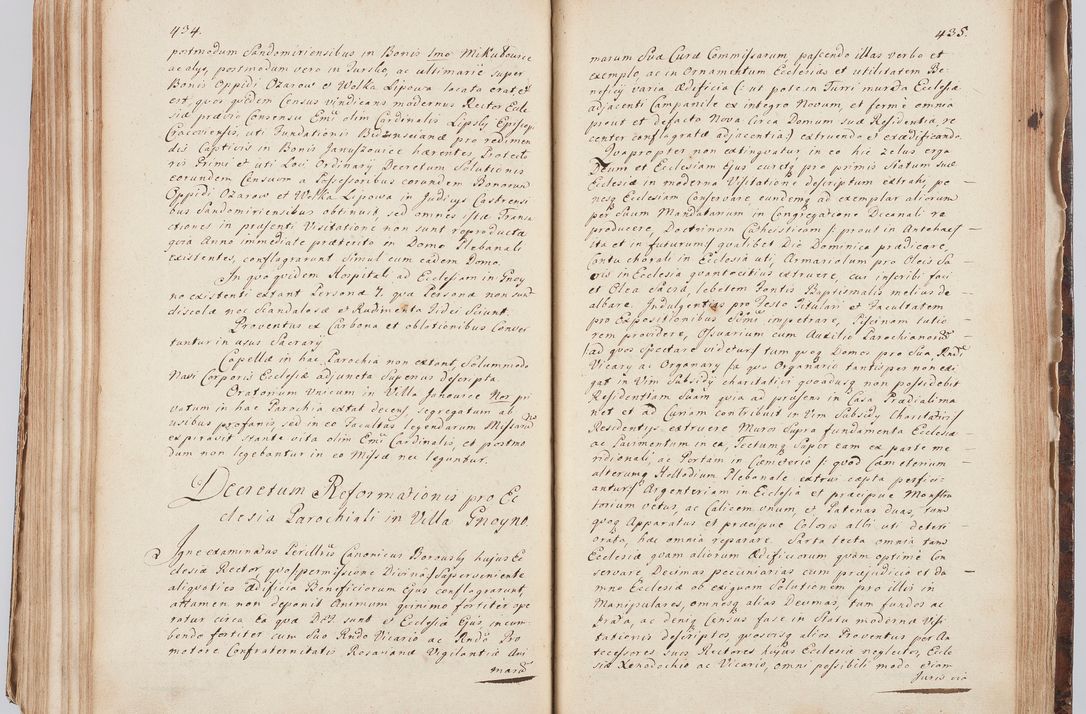 434.
postmodum Sandomiriensibus in Bonis Imo Mikułowce
ac alys, postmodum vero in Jursko, ac ultimarie super
Bonis Oppidi Ozarow et Wolka Lipowa locata erat, et
est, quos quidem Census vindicans modernus Rector Eccle
siæ prævio Consensu Emi olim Cardinalis Lipsky Episcopi
Cracoviensis, uti Fundationis Bidzinscianæ pro redimen
dis Captivis in Bonis Januszowice hærentes, Protecto
ris Primi et uti Loci Ordinarij Decretum Solutionis
eorundem Censuum a Possessoribus eorundem Bonorum
Oppidi Ozarow et Wolka Lipowa in Judicijs Castrensi
bus Sandomiriensibus obtinuit, sed omnes istæ Transa
ctiones in præsenti Visitatione non sunt reproductæ
quia Anno immediate præterito in Domo Plebanali
existentes, conflagrarunt simul cum eadem Domo.
In quo quidem Hospitali ad Ecclesiam in Gnoy
no existenti extant Personæ 7. quæ Personæ non sunt
discolæ nec Scandalosæ et Rudimenta Fidei Sciunt.
Proventus ex Carbona et oblationibus Conver
tuntur in usus Sacrarij
Capellæ in hac Parochia non extant, Solummodo
Navi Corporis Ecclesiæ adjuncta Superius descripta.
Oratorium Unicum in Villa Janowice Nos pri
vatum in hac Parochia extat decens, segregatum ab
usibus profanis, sed in eo Facultas legendarum Missarum
expiravit stante vita olim Emi Cardinalis, et postmo
dum non legebantur in eo Missæ nec leguntur.
Decretum Reformationis pro Ec
clesia Parochiali in Villa Gnoyno
Igne examinatus Perillris Canonicus Borowsky hujus Ec
clesiæ Rector, quo /permissione Divina/ Superveniente
aliquoties Ædificia Beneficiorum Ejus conflagrarunt,
attamen non deponit Animum quinimo fortiter ope
ratur circa ea quæ DEI sunt et Ecclesiæ Ejus, incum
bendo fortiter cum Suo Rndo Vicario ac Rndo Pro
motore Confraternitatis Rosarianæ Vigilantiæ Ani
marū
435.
marum Suæ Curæ Commissarum pascendo illas verbo et
exemplo, ac in Ornamentum Ecclesiæ et utilitatem Be
neficij varia Ædificia (: ut pote in Turri murda Ecclesiæ
adjacenti Campanile ex integro Novum, et ferme omnia
prout et defacto Nova Circa Domum suæ Residentiæ, re
center conflagratæ adjacentia:) extruendo et exædificando.
Quapropter non extinguatur in eo hic zelus erga
Deum et Ecclesiam Ejus curet pro primis Statum suæ
Ecclesiæ in moderna Visitatione descriptum extrahi, pe
nesq Ecclesiam Conservare eundemq ad exemplar aliorum
per Suum Mandatarium in Congregatione Decanali re
producere, Doctrinam Catheisticam /: prout in Antehac/
ita et in futurum/ qualibet Die Dominica prædicare,
Cantu chorali in Ecclesia uti, Armariolum pro Oleis Sa
cris in Ecclesia quantocitius extruere, cui inscribi faci
et Olea Sacra, lebetem Fontis Baptismalis melius de
albare. Indulgentias pro Festo Titulari et Facultatem
pro Expositionibus SSmi impetrare, Piscinam tutio
rem provideret, Ossuarium cum Auxilio Parochianorū
/ad quos Spectare videtur/ tum quoq Domos pro Suo Rndo
Vicario ac Organario /a quo Organario tantisper non exi
gat in Vim Subsidij charitativi quoadusq non possidebit
Residentiam Suam quia ad præsens in Casa Prædialima
net et ad Curiam contribuit in Vim Subsidij Charitativi/
Residentijs extruere Muros Supra fundamenta Ecclesiæ
ac Pavimentum in ea, Tectumq Super eam ex parte me
ridionali, ac Portam in Cæmeterio /: quod Cæmeterium
alterumq Hellodium Plebanale extrui cæpta perfici
antur/ Argenteriam in Ecclesia et præcipue Monstra
torium vetus, ac Calicem unum, et Patenas duas, tum
quoq Apparatus et præcipue Coloris albi uti deteri
orata, hæc omnia reparare. Sarta tecta omnia tam
Ecclesiæ quam aliorum Ædificiorum quam optime Con
servare Decimas pecuniarias cum præjudicio et da
mno Ecclesiæ ob exiguam Solutionem pro illis in
Manipulares, omnesq alias Decimas, tum fundos ac
Prata, ac deniq Census fuse in Statu modernæ Visi
tationis descriptos, quoscunq alios Proventus per An
tecessores suos Rectores hujus Ecclesiæ neglectos, Eccle
siæ Xenodochio ac Vicario, omni possibili modo etiam
Juris via